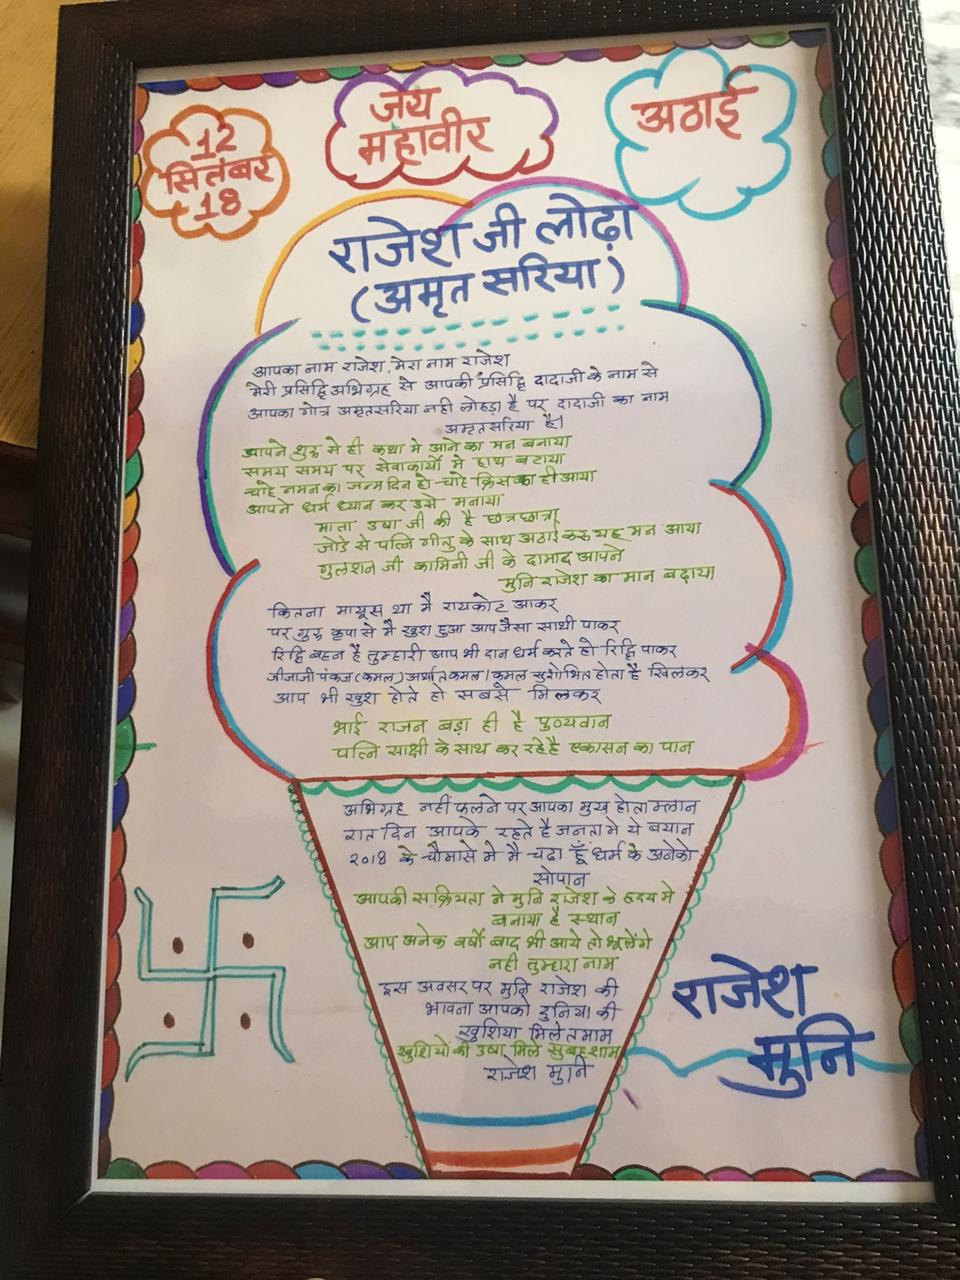 12
सितंबर
18
जय
महावीर
अठाई
राजेश जी लोढ़ा
(अमृत सरिया)
आपका नाम राजेश, मेरा नाम राजेश
मेरी प्रसिद्धि अभिग्रह से आपकी प्रसिद्धि दादाजी के नाम से
आपका गोत्र अमृतसरिया नही लोहड़ा है पर दादाजी का नाम
अमृतसरिया है।
आपने शुरु से ही कथा मे आने का मन बनाया
समय समय पर सेवाकार्यो मे हाथ बटाया
चाहे नमन का जन्मदिन हो चाहे क्रिसका ही आया
आपने धर्म ध्यान कर उसे मनाया
माता उषा जी की है छत्रछात्रा
जोडे से पत्नि गीतु के साथ अठाई करु यह मन आया
गुलशन जी कामिनी जी के दामाद आपने
मुनि राजेश का मान बढ़ाया
कितना मायूस था मै रायकोट आकर
पर गुरु कृपा से मै खुश हुआ आप जैसा साथी पाकर
रिद्धि बहन है तुम्हारी आप भी दान धर्म करते हो रिद्धि पाकर
जीजाजी पंकज (कमल) अर्थात कमल। कमल सुशोभित होता है खिलकर
आप भी खुश होते हो सबसे मिलकर
भाई राजन बड़ा ही है पुण्यवान
पत्नि साक्षी के साथ कर रहे है एकासन का पान
अभिग्रह नहीं फलने पर आपका मुख होता म्लान
रात दिन आपके रहते है जनता मे ये बयान
2018 के चौमासे मे मै चढा हूँ धर्म के अनेको
सोपान
आपकी सक्रियता ने मुनि राजेश के हृदय मे
बनाया है स्थान
आप अनेक वर्षो बाद भी आये तो भूलेंगे
नही तुम्हारा नाम
इस अवसर पर मुनि राजेश की
भावना आपको दुनिया की
खुशिया मिले तमाम
खुशियों की उषा मिले सुबह शाम
राजेश मुनि
राजेश
मुनि